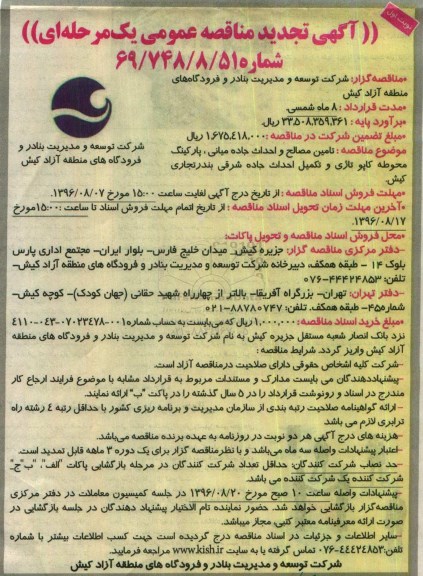 نوبت اول
(( آگهی تجدید مناقصه عمومی یک‌مرحله‌ای))
شماره۶۹/۷۴۸/۸/۵۱
•مناقصه‌گزار: شرکت توسعه و مدیریت بنادر و فرودگاه‌های
منطقه آزاد کیش
•مدت قرارداد : ۸ ماه شمسی
•برآورد پایه : ۳۳,۵۰۸,۳۵۹,۳۶۱ ریال
•مبلغ تضمین شرکت در مناقصه :۱,۶۷۵,۴۱۸,۰۰۰ ریال.
موضوع مناقصه : تامین مصالح و احداث جاده میانی ، پارکینگ
محوطه کاپو تاژی و تکمیل احداث جاده شرقی بندرتجاری
کیش
شرکت توسعه و مدیریت بنادر و
فرودگاه های منطقه آزاد کیش
•مهلت فروش اسناد مناقصه : از تاریخ درج آگهی لغایت ساعت ۱۵:۰۰ مورخ ۱۳۹۶/۰۸/۰۷.
•آخرین مهلت زمان تحویل اسناد مناقصه : از تاریخ اتمام مهلت فروش اسناد تا ساعت :۱۵:۰۰مورخ
۱۳۹۶/۰۸/۱۷
•محل فروش اسناد مناقصه و تحویل پاکات:
-دفتر مرکزی مناقصه گزار: جزیره کیش_ میدان خلیج فارس- بلوار ایران- مجتمع اداری پارس
بلوک ۱۴ - طبقه همکف، دبیرخانه شرکت توسعه و مدیریت بنادر و فرودگاه های منطقه آزاد کیش-
تلفن: ۴۴۴۲۴۸۵۳-۰۷۶
-دفتر تهران: تهران- بزرگراه آفریقا- بالاتر از چهارراه شهید حقانی (جهان کودک)- کوچه کیش-
شماره۴۵- طبقه همکف. تلفن: ۸۸۷۸۰۷۴۷-۰۲۱
•مبلغ خرید اسناد مناقصه: ۱,۰۰۰,۰۰۰ ریال که می‌بایست به حساب شماره۰۰۱-۰۷۰۲۳۴۷۸-۰۴۳-۴۱۱۰
نزد بانک انصار شعبه مستقل جزیره کیش به نام شرکت توسعه و مدیریت بنادر و فرودگاه های منطقه
آزاد کیش واریز گردد. شرایط مناقصه :
-شرکت کلیه اشخاص حقوقی دارای صلاحیت درمناقصه آزاد است.
-پیشنهاددهندگان می بایست مدارک و مستندات مربوط به قرارداد مشابه با موضوع فرایند ارجاع کار
مندرج در اسناد و رونوشت قرارداد را در ۵ سال گذشته را در پاکت "ب" ارائه نمایند.
- ارائه گواهینامه صلاحیت رتبه بندی از سازمان مدیریت و برنامه ریزی کشور با حداقل رتبه ٤ رشته راه
ترابری لازم می باشد
-هزینه های درج آگهی هر دو نوبت در روزنامه به عهده برنده مناقصه می‌باشد.
-اعتبار پیشنهادات واصله سه ماه می‌باشد و با نظرمناقصه گزار برای یک دوره ۳ ماهه قابل تمدید است.
-حد نصاب شرکت کنندگان: حداقل تعداد شرکت کنندگان در مرحله بازگشایی پاکات "الف"، "ب"ج"،
شرکت کننده یک شرکت کننده می باشد.
-پیشنهادات واصله ساعت ۱۰ صبح مورخ ۱۳۹۶/۰۸/۲۰ در جلسه کمیسیون معاملات در دفتر مرکزی
مناقصه‌گزار بازگشایی خواهد شد. حضور نماینده تام الاختیار پیشنهاد دهندگان در جلسه بازگشایی در
صورت ارائه معرفینامه معتبر کتبی، مجاز میباشد.
-سایر اطلاعات و جزئیات در اسناد مناقصه درج گردیده است جهت کسب اطلاعات بیشتر با شماره
تلفن:۴۴۴۲۴۸۵۳-۰۷۶ تماس گرفته یا به سایت www.kish.ir مراجعه فرمایید.
شرکت توسعه و مدیریت بنادر و فرودگاه های منطقه آزاد کیش